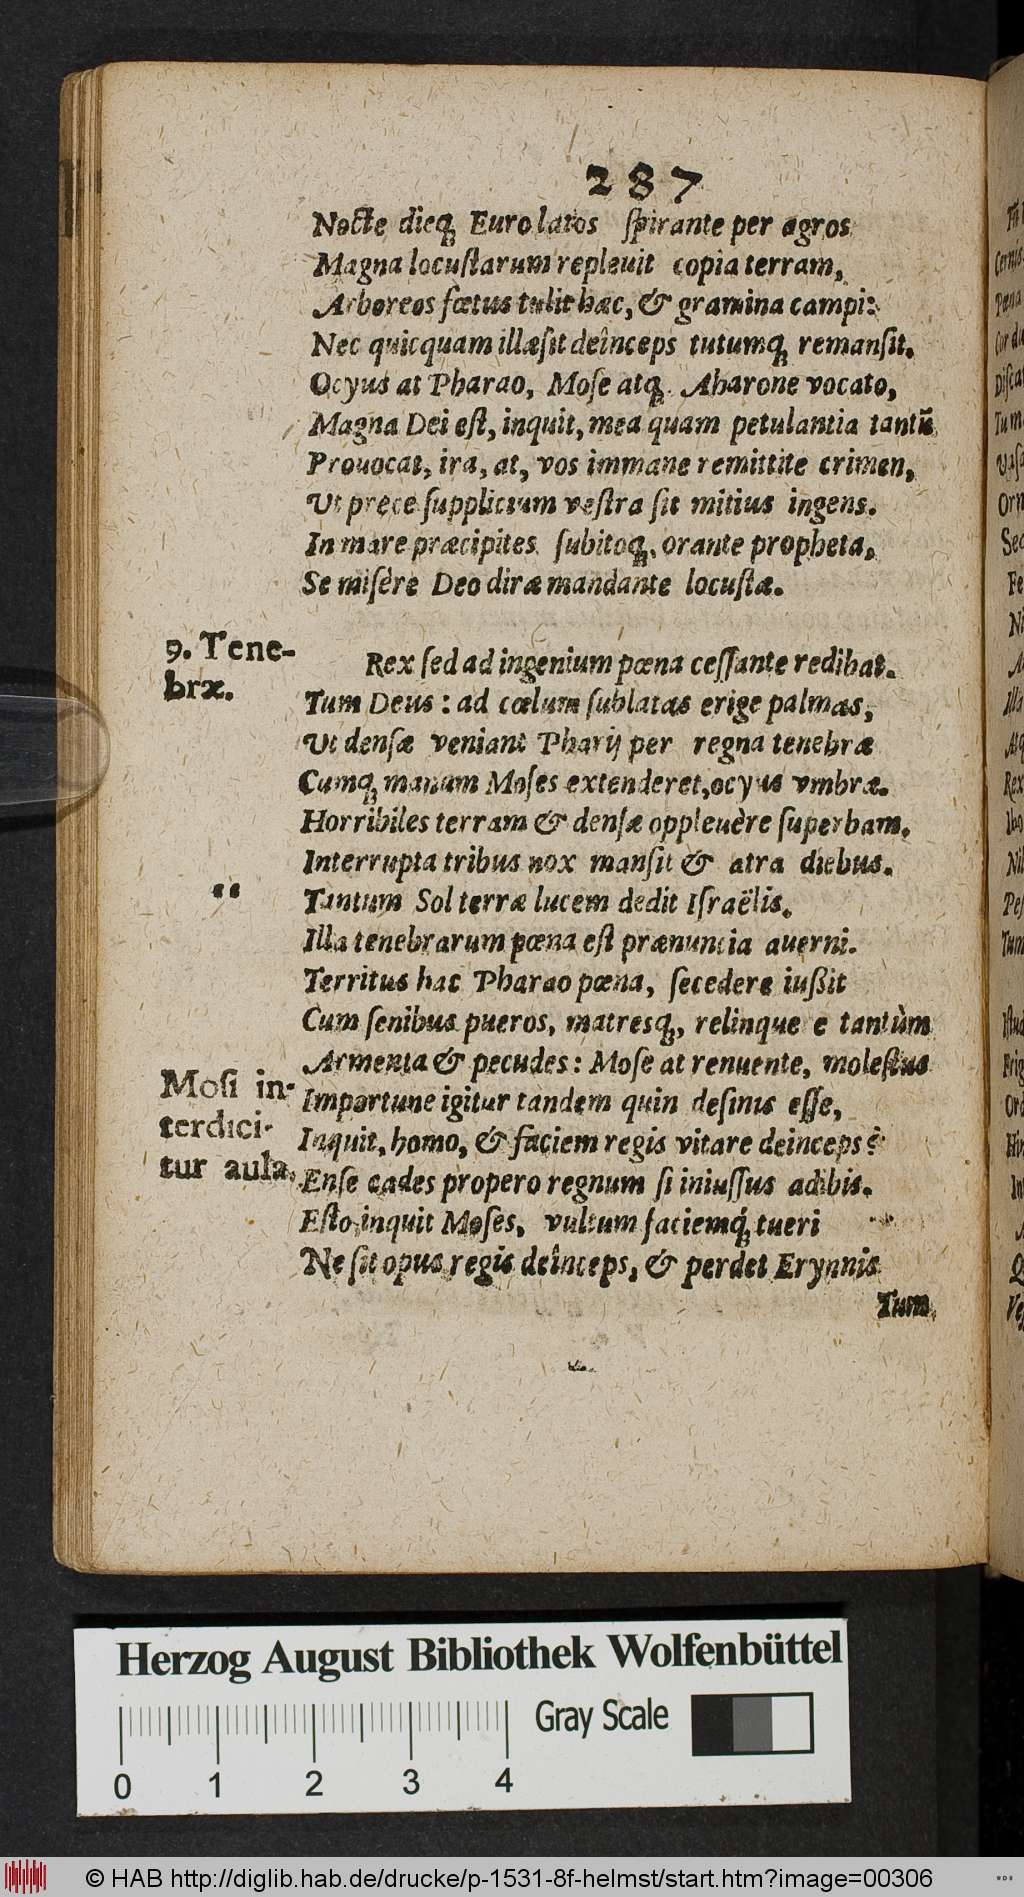 287
Nocte dieq; Euro latos ſpirante per agros
Magna locuſtarum repleuit copia terram,
Arboreos fœtus tulit hæc, & gramina campi:
Nec quicquam illæſit deînceps tutumq; remanſit.
Ocyus at Pharao, Moſe atq; Aharone vocato,
Magna Dei eſt, inquit, mea quam petulantia tantũ
Prouocat, ira, at, vos immane remittite crimen,
Ut prece ſupplicium veſtra ſit mitius ingens.
In mare præcipites ſubitoq;, orante propheta,
Se misère Deo diræ mandante locuſtæ.
9. Tene-
bræ.
Rex ſed ad ingenium pœna ceſſante redibat.
Tum Deus: ad cœlum ſublatas erige palmas,
Ut denſæ veniant Pharij per regna tenebræ
Cumq; manum Moſes extenderet, ocyus vmbræ.
Horribiles terram & denſæ oppleuère ſuperbam.
Interrupta tribus nox manſit & atra diebus.
“
Tantum Sol terræ lucem dedit Iſraëlis.
Illa tenebrarum pœna eſt prænuncia auerni.
Territus hac Pharao pœna, ſecedere iußit
Cum ſenibus pueros, matresq;, relinquere tantùm
Armenta & pecudes: Moſe at renuente, moleſtus
Moſi in-
terdici-
tur aula.
Importune igitur tandem quin deſinis eſſe,
Inquit, homo, & faciem regis vitare deinceps?
Enſe cades propero regnum ſi iniuſſus adibis.
Eſto, inquit Moſes, vultum faciemq́; tueri
Ne ſit opus regis deînceps, & perdet Erynnis
Tum
Herzog August Bibliothek Wolfenbüttel
Gray Scale
0 1 2 3 4
© HAB http://diglib.hab.de/drucke/p-1531-8f-helmst/start.htm?image=00306